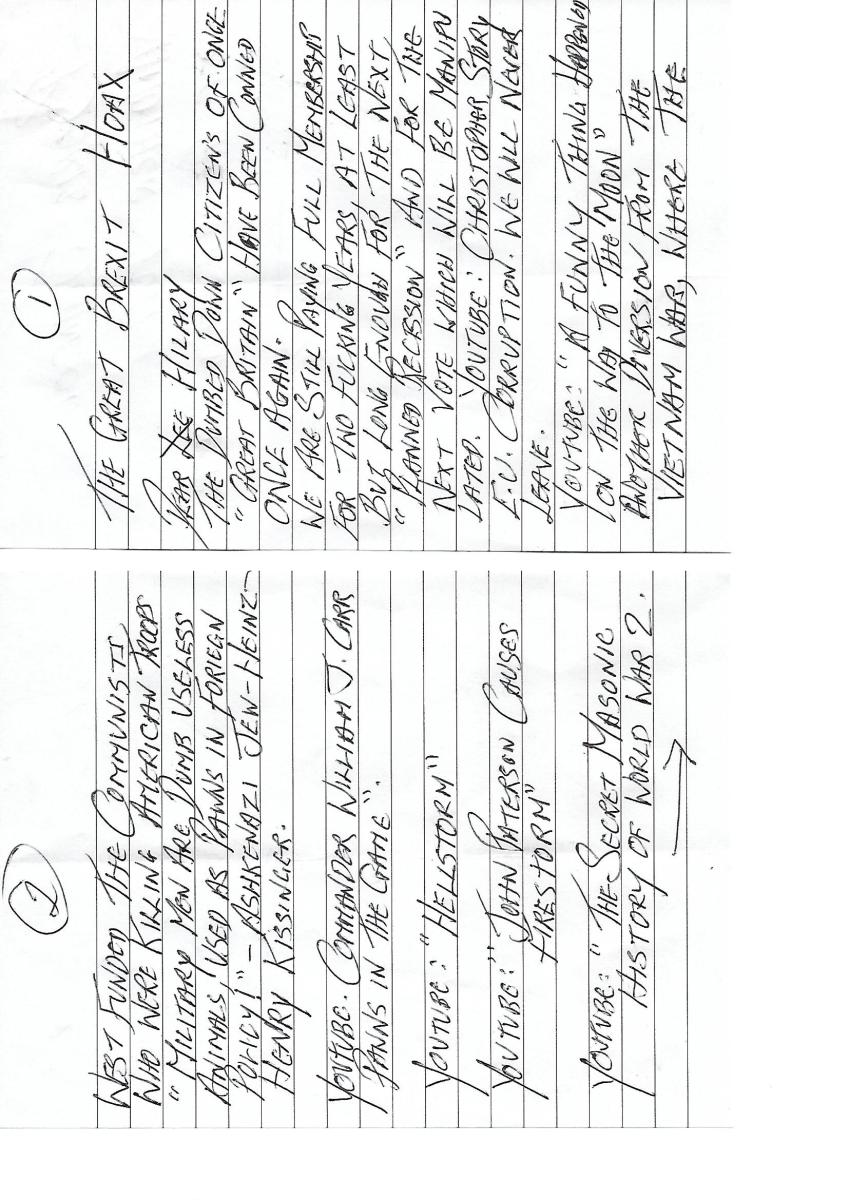 ①
THE GREAT BREXIT HOAX
DEAR HILARY
THE DUMBED DOWN CITIZEN'S OF ONCE
"GREAT BRITAIN" HAVE BEEN CONNED
ONCE AGAIN.
WE ARE STILL PAYING FULL MEMBERSHIP
FOR TWO FUCKING YEARS, AT LEAST
BUT LONG ENOUGH FOR THE NEXT
"PLANNED RECESSION" AND FOR THE
NEXT VOTE WHICH WILL BE MANIPU
LATED. YOUTUBE: CHRISTOPHER STORY
E.U. CORRUPTION. WE WILL NEVER
LEAVE.
YOUTUBE: "A FUNNY THING HAPPENED
ON THE WAY TO THE MOON"
ANOTHER DIVERSION FROM THE
VIETNAM WAR, WHERE THE
②
WEST FUNDED THE COMMUNISTS
WHO WERE KILLING AMERICAN TROOPS
"MILITARY MEN ARE DUMB USELESS
ANIMALS, USED AS PAWNS IN FORIEGN
POLICY!" – ASHKENAZI JEW – HEINZ –
HENRY KISSINGER.
YOUTUBE. COMMANDER WILLIAM J. CARR
PAWNS IN THE GAME".
YOUTUBE: "HELLSTORM"
YOUTUBE: "JOHN PATERSON CAUSES
FIRESTORM"
YOUTUBE: "THE SECRET MASONIC
HISTORY OF WORLD WAR 2.
→